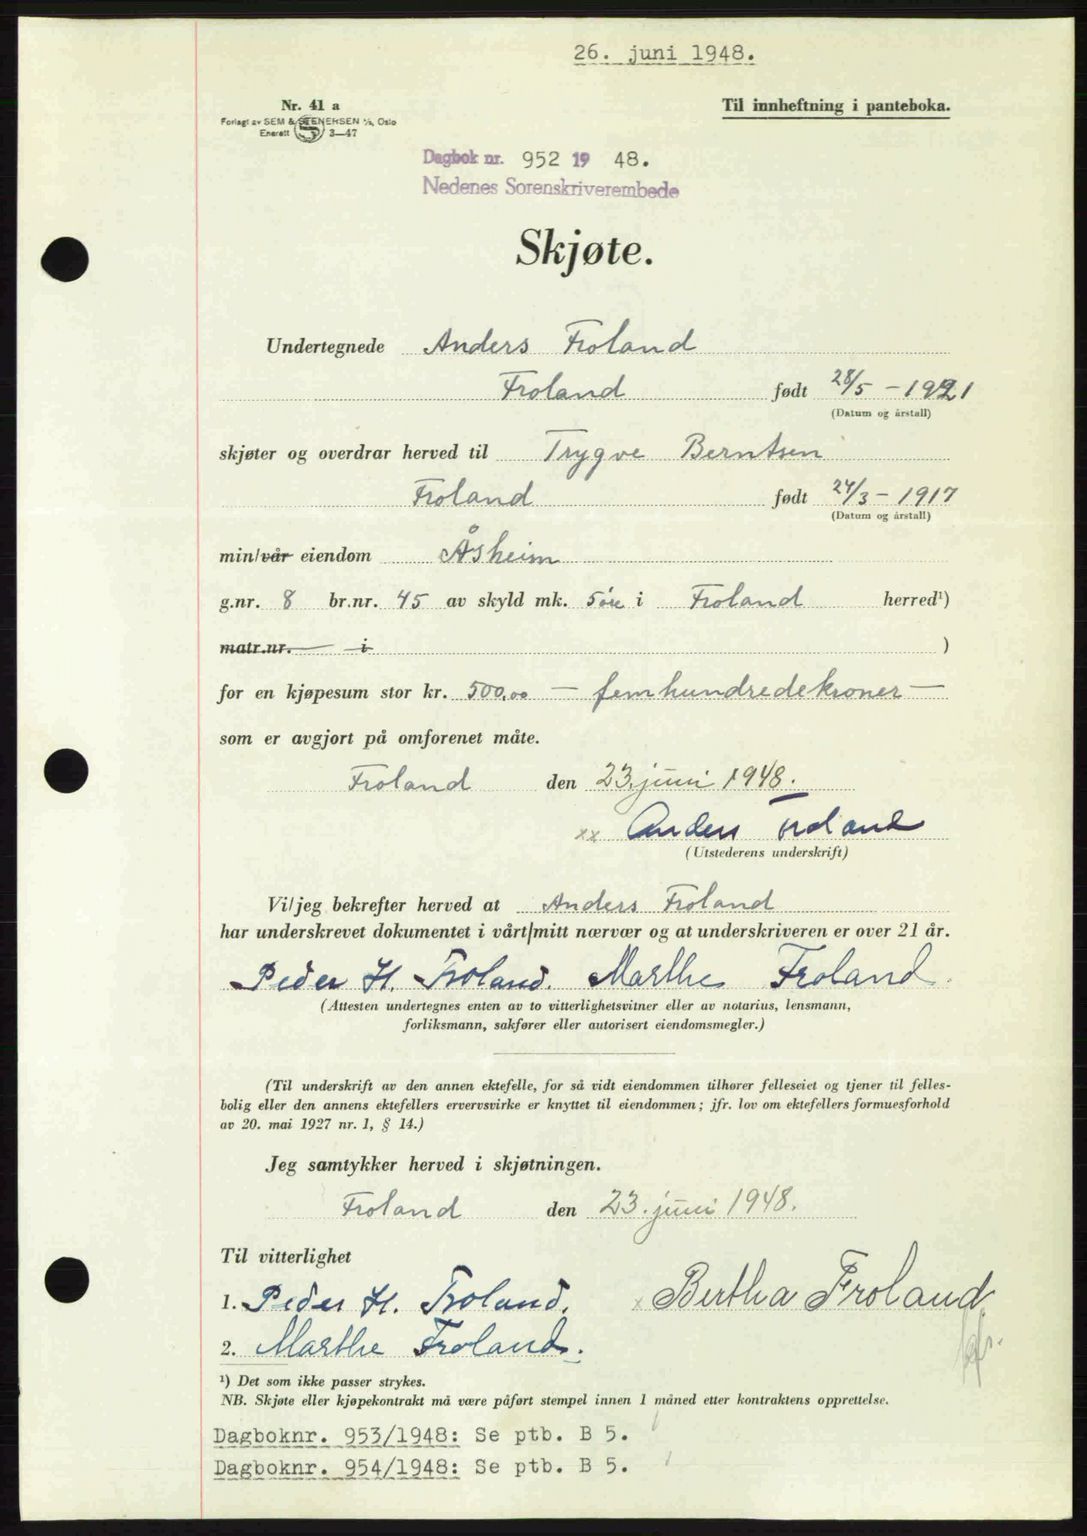 26. juni 1948.
Nr. 41 a
Til innheftning i panteboka.
Forlagt av SEM & STENERSEN A/S, Oslo
Enerett S 3—47
Dagbok nr. 952 19 48.
Nedenes Sorenskriverembede
Skjøte.
Undertegnede Anders Froland
Froland født 28/5 - 1921
(Datum og årstall)
skjøter og overdrar herved til Trygve Berntsen
Froland født 24/3 - 1917
(Datum og årstall)
min/vår eiendom Åsheim
g.nr. 8 br.nr. 45 av skyld mk. 5 øre i Froland herred¹)
matr.nr. i )
for en kjøpesum stor kr. 500,00 — femhundredekroner —
som er avgjort på omforenet måte.
Froland den 23. juni 1948.
xx Anders Froland
(Utstederens underskrift)
Vi/jeg bekrefter herved at Anders Froland
har underskrevet dokumentet i vårt/mitt nærvær og at underskriveren er over 21 år.
Peder H. Froland. Marthe Froland.
(Attesten undertegnes enten av to vitterlighetsvitner eller av notarius, lensmann,
forliksmann, sakfører eller autorisert eiendomsmegler.)
(Til underskrift av den annen ektefelle, for så vidt eiendommen tilhører felleseiet og tjener til felles-
bolig eller den annens ektefellers ervervsvirke er knyttet til eiendommen; jfr. lov om ektefellers formuesforhold
av 20. mai 1927 nr. 1, § 14.)
Jeg samtykker herved i skjøtningen.
Froland den 23. juni 1948.
Til vitterlighet
1. Peder H. Froland. x Bertha Froland
2. Marthe Froland.
¹) Det som ikke passer strykes.
NB. Skjøte eller kjøpekontrakt må være påført stempel innen 1 måned etter kontraktens opprettelse.
Dagboknr. 953/1948: Se ptb. B 5.
Dagboknr. 954/1948: Se ptb. B 5.